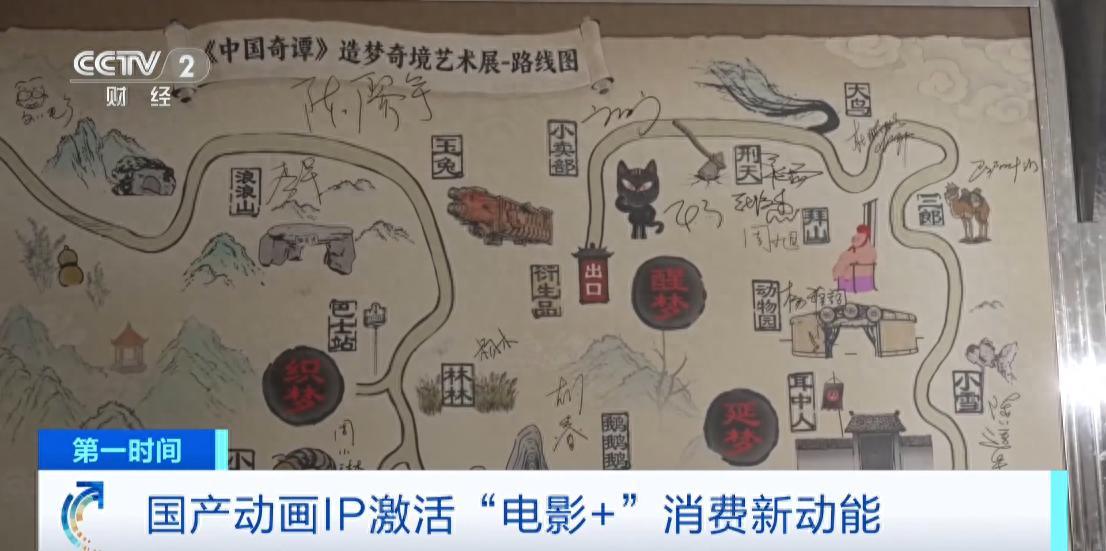 CCTV 2
财经
《中国奇谭》造梦奇境艺术展-路线图
陈廖宇
大鸟
小卖部
玉兔
刑天
浪浪山
三郎
拜山
周旭
出口
衍生品
醒梦
动物园
巴士站
织梦
林林
杨木
小雪
耳中人
胡春
延梦
鹅鹅鹅
周小琳
小
第一时间
国产动画IP激活“电影+”消费新动能